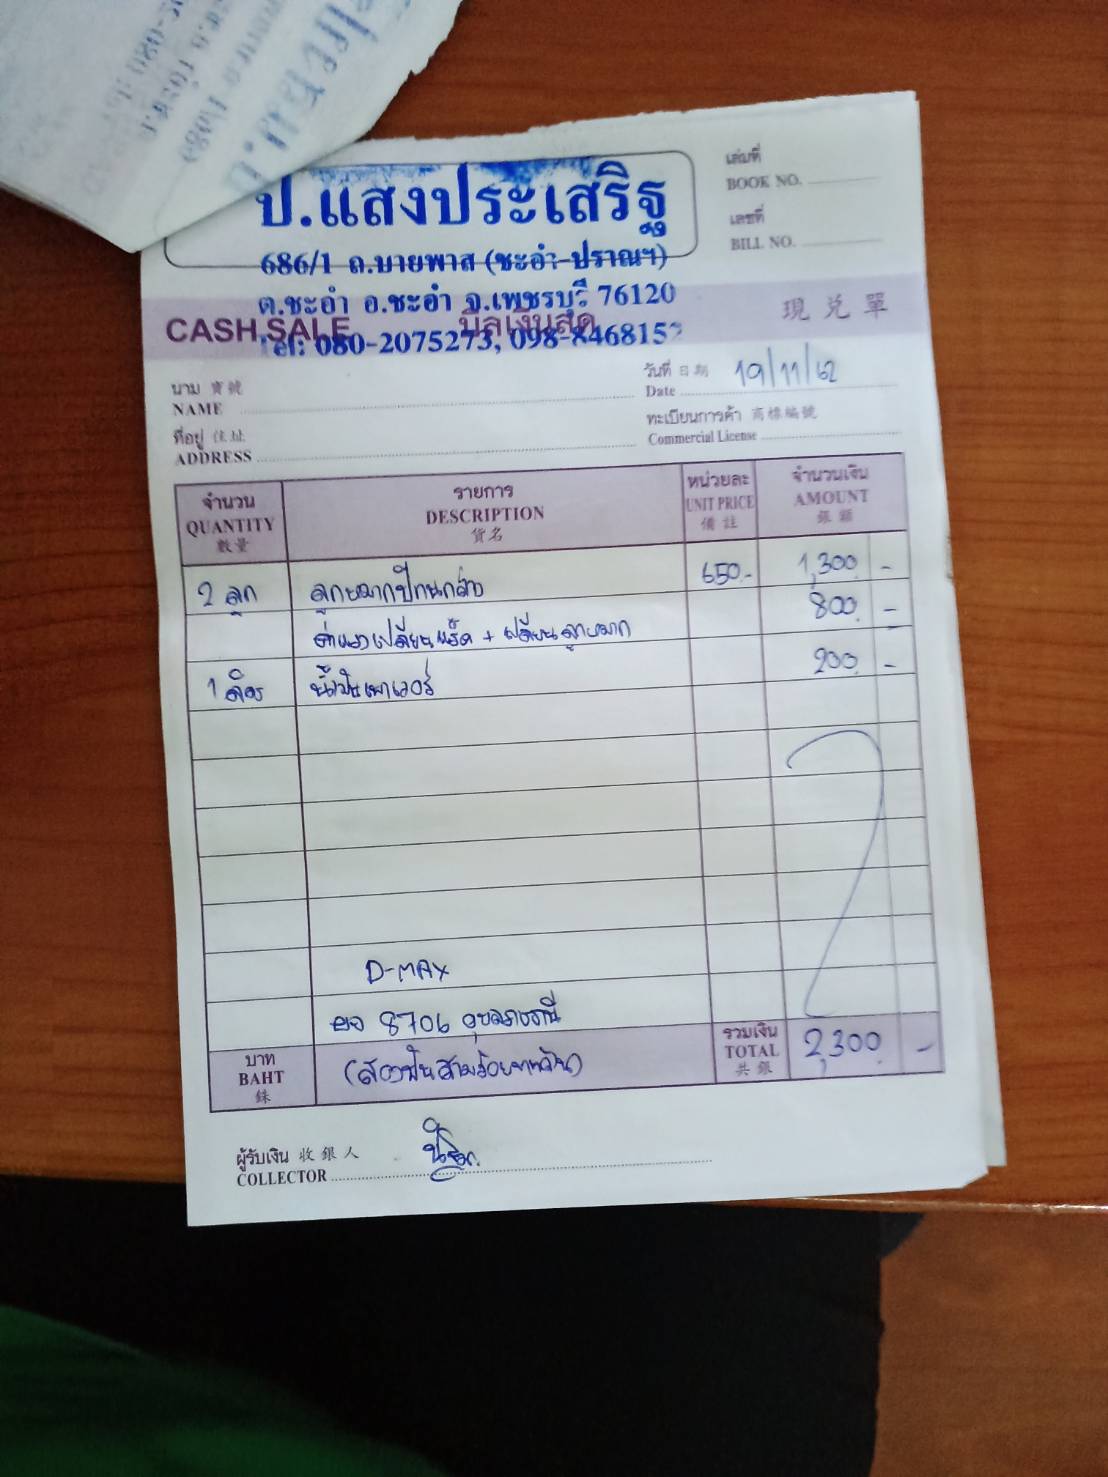 ป.แสงประเสริฐ
686/1 ถ.บายพาส (ชะอำ-ปราณฯ)
ต.ชะอำ อ.ชะอำ จ.เพชรบุรี 76120
Tel: 080-2075273, 098-8468152
เล่มที่
BOOK NO.
เลขที่
BILL NO.
CASH SALE บิลเงินสด 現兌單
นาม 寶號
NAME
วันที่ 日期
Date 19/11/62
ที่อยู่ 住址
ADDRESS
ทะเบียนการค้า 商標編號
Commercial License
จำนวน รายการ หน่วยละ จำนวนเงิน
QUANTITY DESCRIPTION UNIT PRICE AMOUNT
數量 貨名 備註 銀額
2 ลูก ลูกหมากปีกนกล่าง 650.- 1,300 -
ค่าแรงเปลี่ยนแร็ค + เปลี่ยนลูกหมาก 800 -
1 ลิตร น้ำมันเพาเวอร์ 200 -
D-MAX
8706 อุบลราชธานี
บาท
BAHT
銖
(สองพันสามร้อยบาทถ้วน)
รวมเงิน
TOTAL 2,300 -
共銀
ผู้รับเงิน 收銀人
COLLECTOR